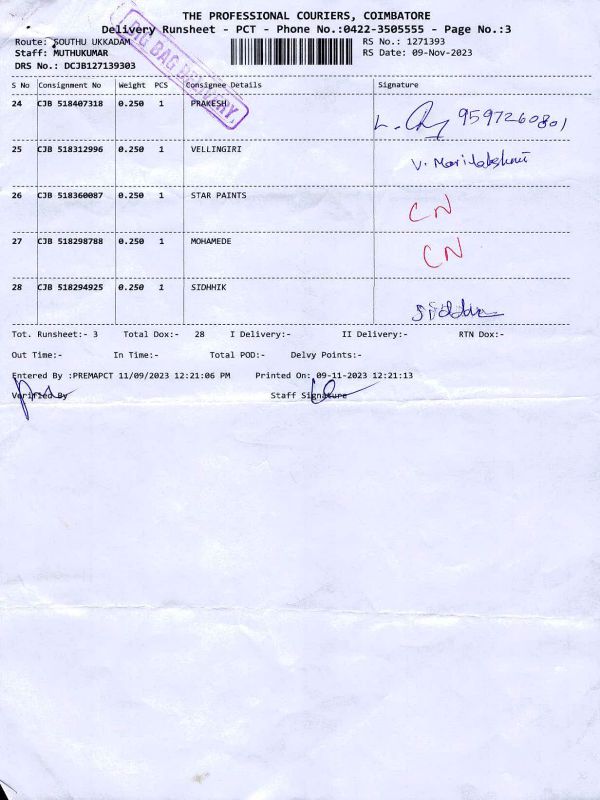 THE PROFESSIONAL COURIERS, COIMBATORE
Delivery Runsheet - PCT - Phone No.:0422-3505555 - Page No.:3
Route: SOUTHU UKKADAM RS No.: 1271393
Staff: MUTHUKUMAR RS Date: 09-Nov-2023
DRS No.: DCJB127139303
BAG DELIVERY
S No Consignment No Weight PCS Consignee Details Signature
24 CJB 518407318 0.250 1 PRAKESH 9597260801
25 CJB 518312996 0.250 1 VELLINGIRI V. Marilakshmi
26 CJB 518360087 0.250 1 STAR PAINTS CN
27 CJB 518298788 0.250 1 MOHAMEDE CN
28 CJB 518294925 0.250 1 SIDHHIK
Tot. Runsheet:- 3 Total Dox:- 28 I Delivery:- II Delivery:- RTN Dox:-
Out Time:- In Time:- Total POD:- Delvy Points:-
Entered By :PREMAPCT 11/09/2023 12:21:06 PM Printed On: 09-11-2023 12:21:13
Verified By Staff Signature